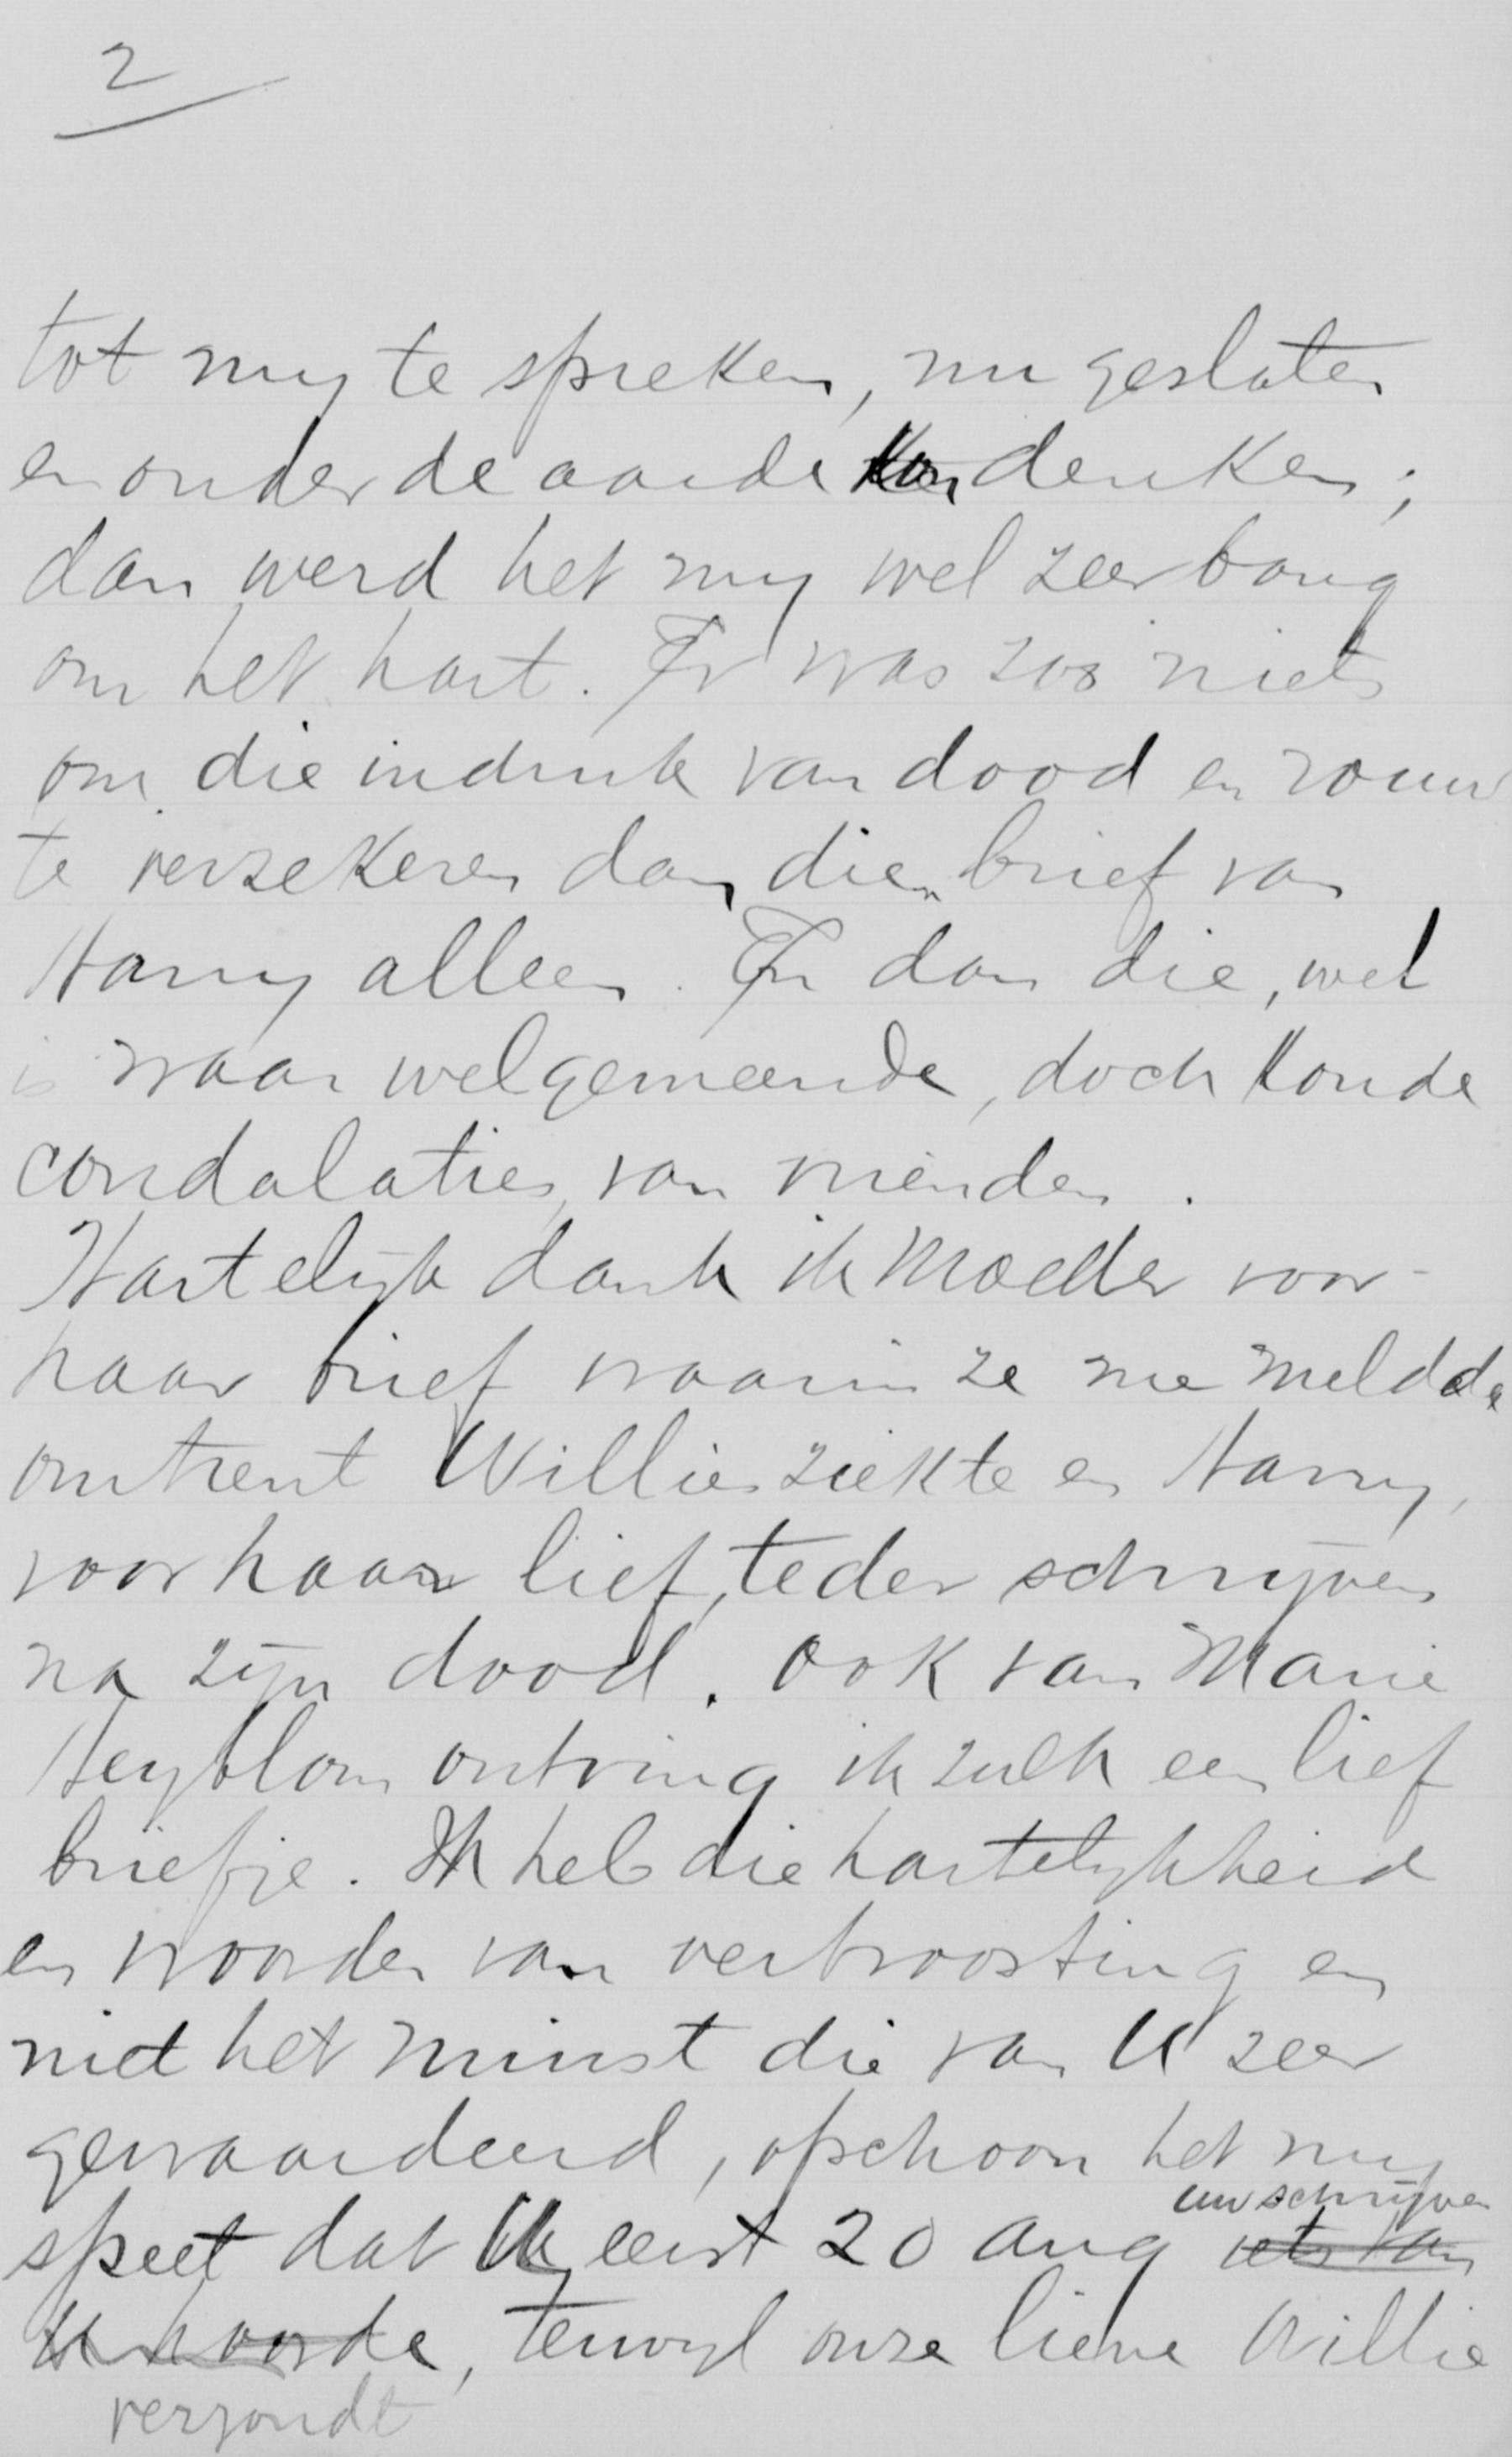 2
tot my te spreken, nu gesloten
en onder de aarde kon denken;
dan werd het my wel zeer bang
om het hart. Er was zoo niets
om die indruk van dood en rouw
te verzekeren dan die brief van
Harry alleen. En dan die, wel
is waar welgemeende, doch koude
condalaties van vrienden.
Hartelijk dank ik Moeder voor
haar brief waarin ze me meldde
omtrent Willies ziekte en Harry,
voor haar lief, teder schrijven
na zijn dood. Ook van Marie
Heyblom ontving ik zulk een lief
briefje. Ik heb die hartelykheid
en woorden van vertroosting en
niet het minst die van U zeer
gewaardeerd, opschoon het my
uw schrijven
speet dat U eerst 20 Aug iets van
U hoorde, terwyl onze lieve Willie
verzondt